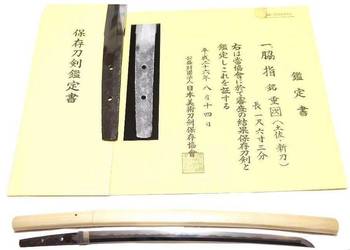 鑑定書
一、脇指 銘 重國(土佐・新刀)
長 一尺六寸三分
右は當協會に於て審査の結果保存刀剣と
鑑定しこれを証する
平成二十六年 八月十四日
公益財団法人日本美術刀剣保存協會
保存刀剣鑑定書